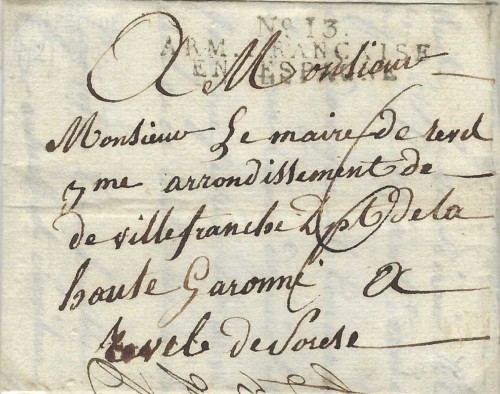 No 13.
ARM. FRANÇAISE
EN ESPAGNE
A Monsieur
Monsieur Le maire de revel
7me arrondissement de
de villefranche Dpt de la
haute Garonne
A
revel de Sorese